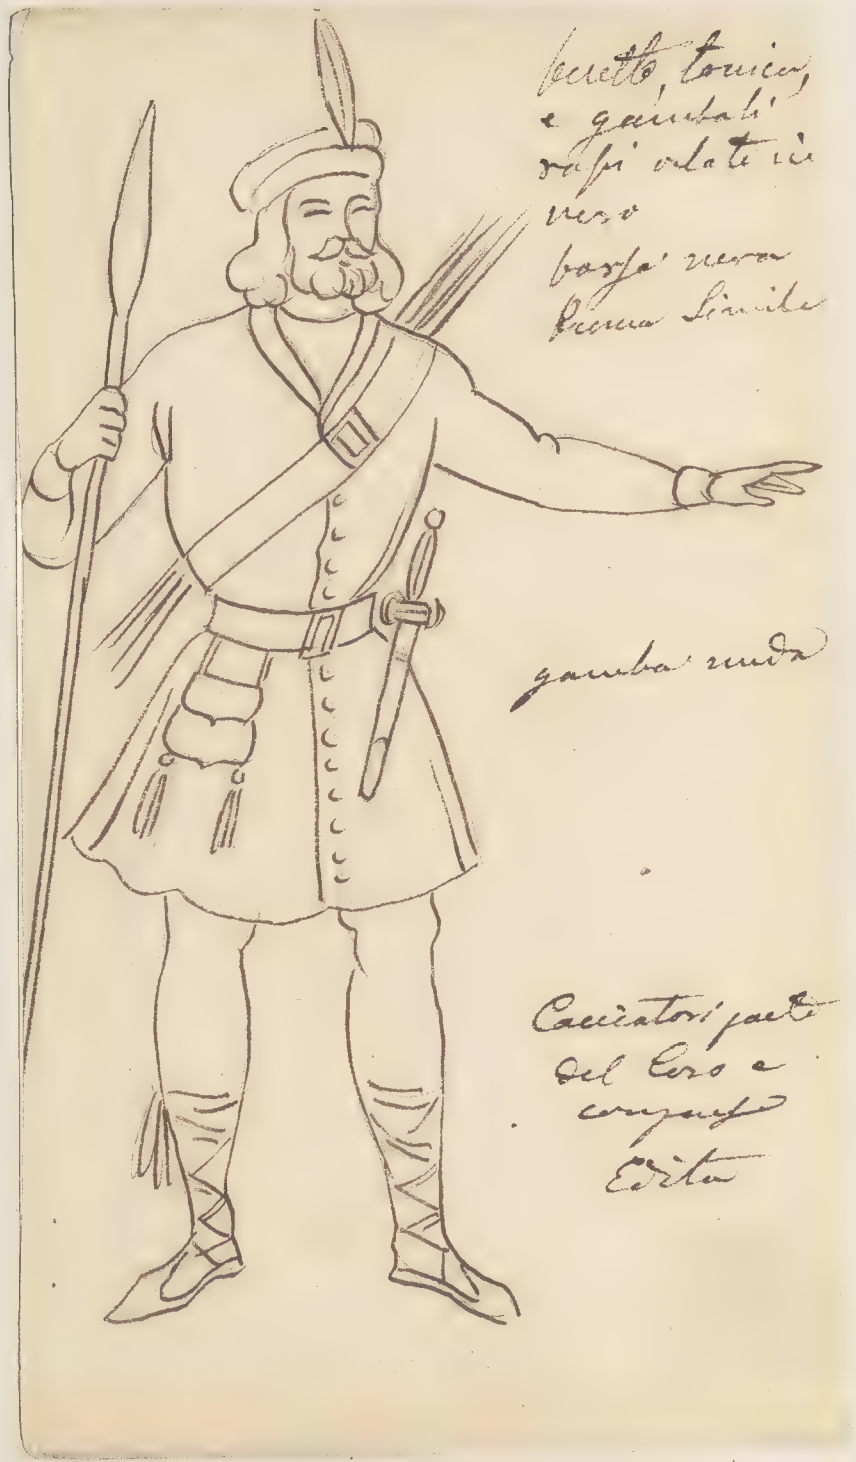 beretto, tonica,
e gambali
rossi orlate in
nero
borsa nera
Piuma Simile
gamba nuda
Cacciatori parte
del Coro e
comparse
Edita